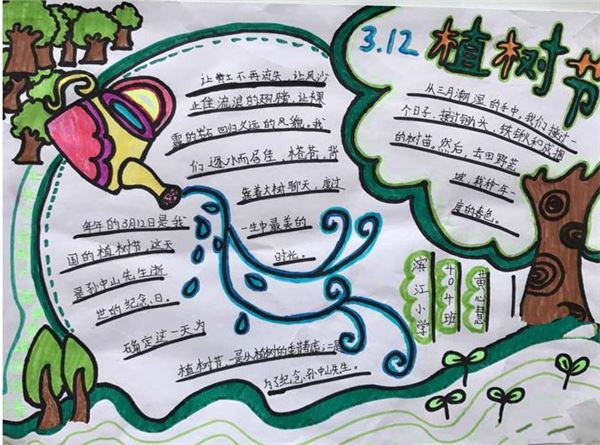 3.12 植树节
让黄土不再流失,让风沙
止住流浪的翅膀,让裸
露的岩石回归久远的风貌,我
们逐水而居住,搭荷,背
靠着大树聊天,度过
一生中最美的
时光。
从三月潮湿的手中,我们接过一
个日子,接过锄头、铁锹和茂拥
的树苗,然后,去田野荒
坡,栽种一年一
度的春色。
每年的3月12日是我
国的植树节,这天
是孙中山先生逝
世的纪念日。
确定这一天为
植树节,一是从植树的季节考虑;二是
为了纪念孙中山先生。
滨江小学
404班
黄心慧